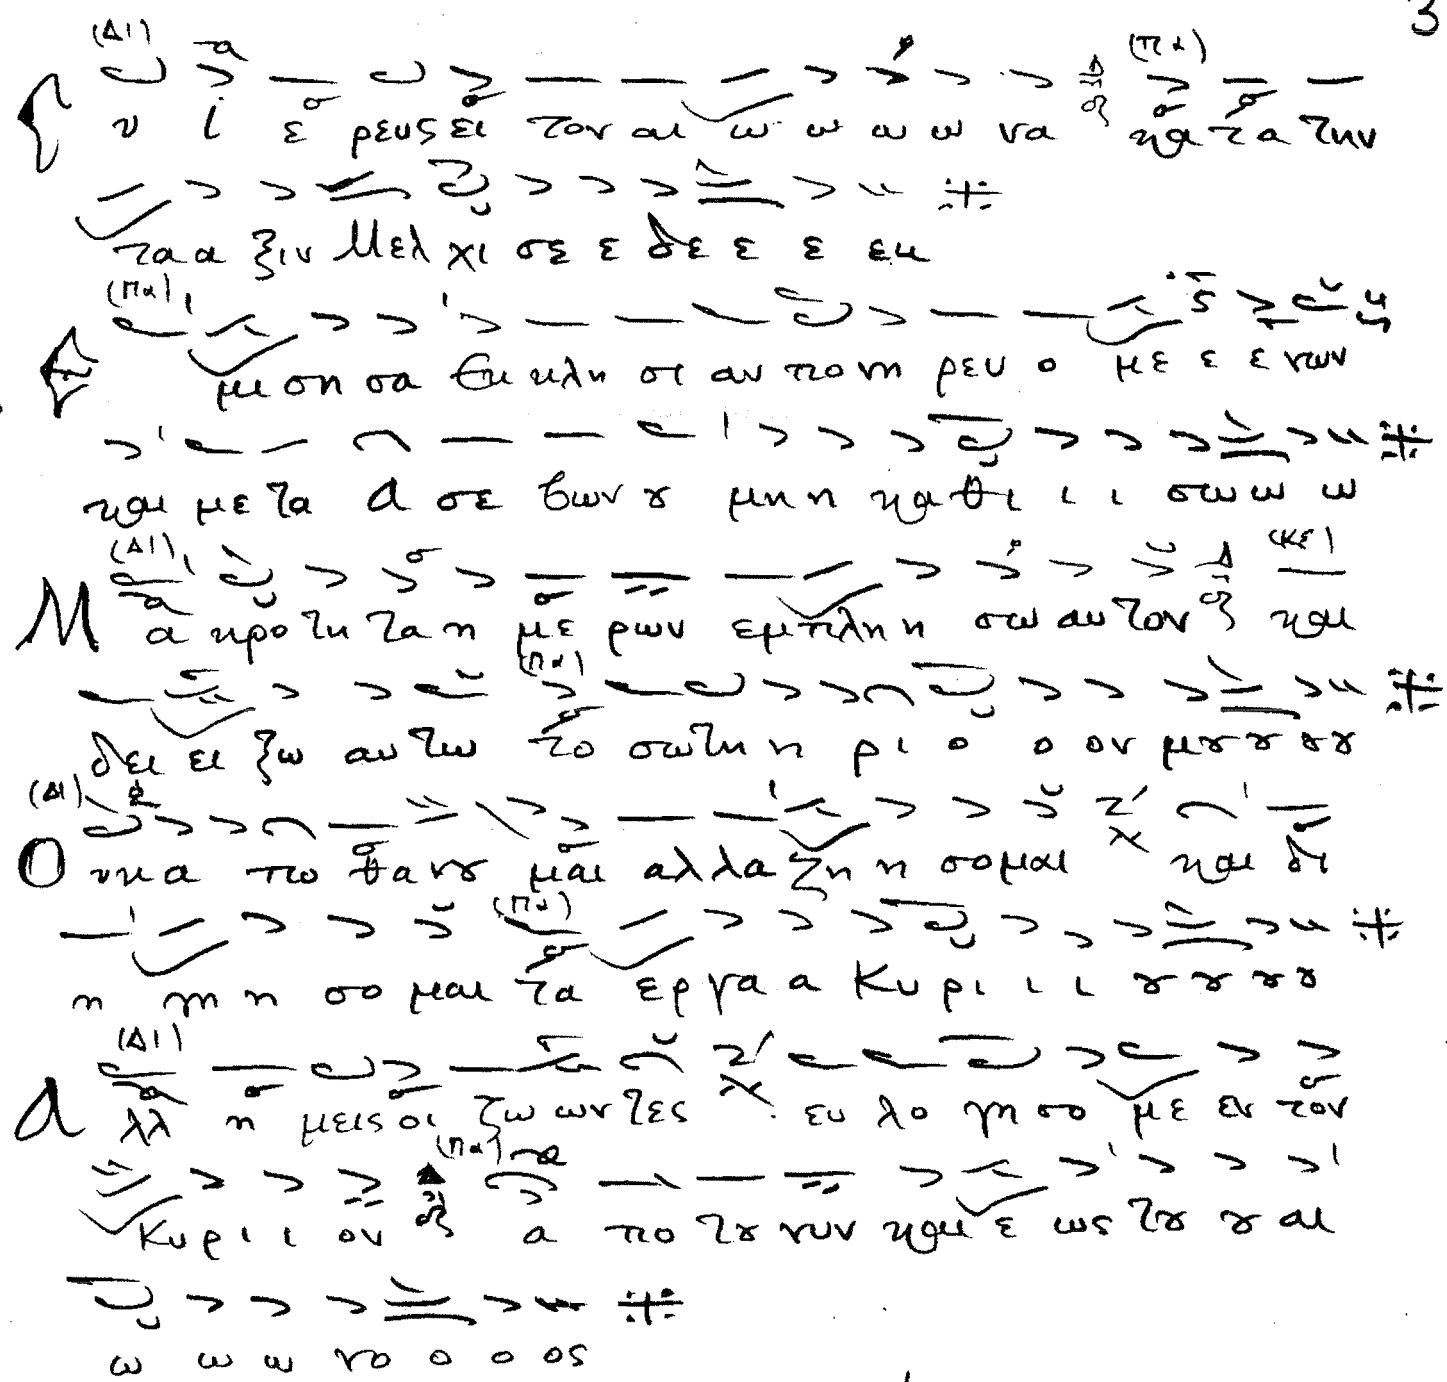 3
(Δι) (Πα)
υ ι ε ρευς ει τον αι ω ω ω ω να κα τα την
τα α ξιν Μελ χι σε ε δε ε ε εκ
(Πα)
Ε μι ση σα Εκ κλη σι αν πο νη ρευ ο με ε ε νων
και με τα α σε βων ȣ μη η κα θι ι ι ι σω ω ω
(Δι) (Κε)
Μ α κρο τη τα η με ρων εμ πλη η σω αυ τον και
(Πα)
δει ει ξω αυ τω το σω τη η ρι ο ο ον μȣ ȣ ȣ ȣ
(Δι)
Ο υκ α πο θα νȣ μαι αλ λα ζη η σο μαι και δι
(Πα)
η γη η σο μαι τα ερ γα α Κυ ρι ι ι ȣ ȣ ȣ ȣ
(Δι)
Α λλ η μεις οι ζω ων τες ευ λο γη σο με εν τον
(Πα)
Κυ ρι ι ον α πο τȣ νυν και ε ως τȣ ȣ αι
ω ω ω νο ο ο ος